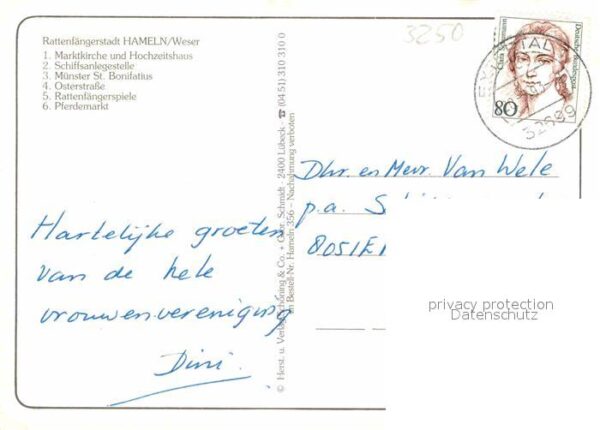 Rattenfängerstadt HAMELN/Weser
1. Marktkirche und Hochzeitshaus
2. Schiffsanlegestelle
3. Münster St. Bonifatius
4. Osterstraße
5. Rattenfängerspiele
6. Pferdemarkt
Hartelijke groeten
van de hele
vrouwenvereniging
Dini.
© Herst. u. Verlag Schöning & Co. + Gebr. Schmidt · 2400 Lübeck · ☎ (04 51) 310 310 0
im Bestell-Nr. Hameln 356 – Nachahmung verboten
3250
Deutsche Bundespost
80
32699
Dhr. en Mevr. Van Wele
p.a.
8051E
privacy protection
Datenschutz